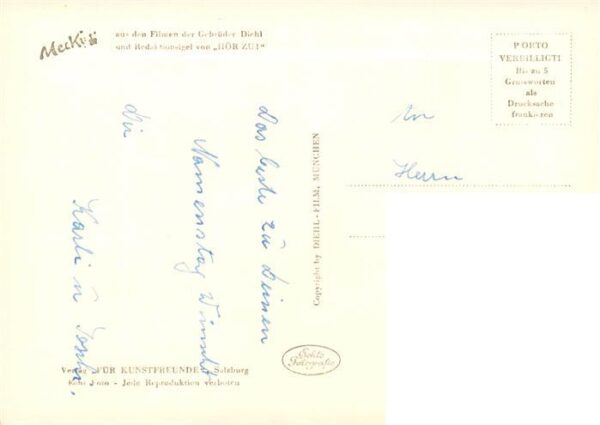 Mecki
aus den Filmen der Gebrüder Diehl
und Redaktionsigel von „HÖR ZU!"
PORTO
VERBILLIGT!
Bis zu 5
Grussworten
als
Drucksache
frankieren
An
Herrn
Das beste zu Deinen
Namenstag wünscht
dir
Karli u
Copyright by DIEHL-FILM, MÜNCHEN
Echte
Fotografie
Verlag FÜR KUNSTFREUNDE Salzburg
Echt Foto - Jede Reproduktion verboten